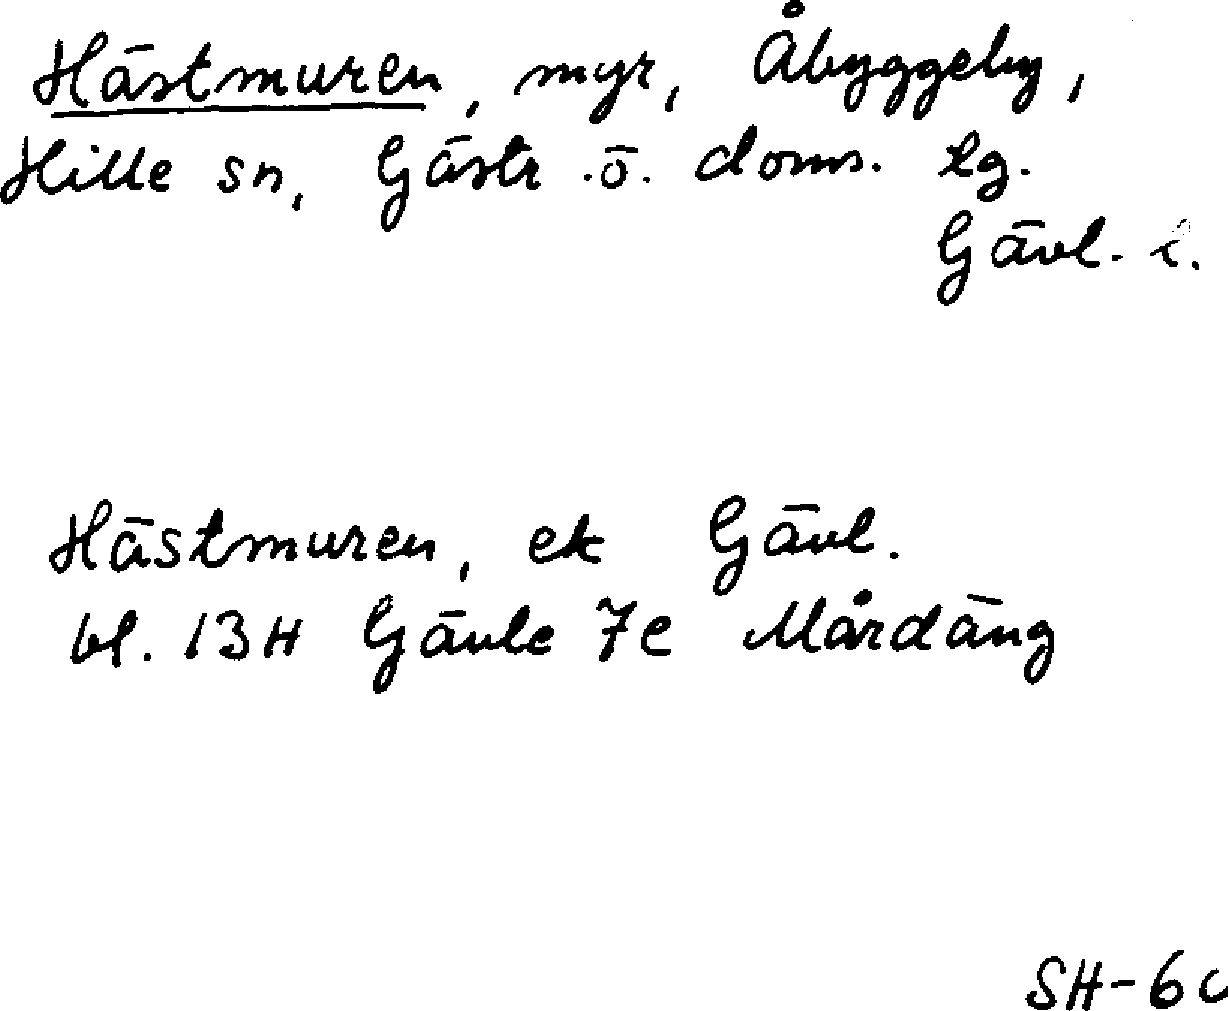 Hästmuren, myr, Åbyggeby,
Hille sn, Gästr. ö. doms. tg.
Gävl. l.
Hästmuren, ek Gävl.
bl. 13H Gävle 7e Mårdäng
SH-6